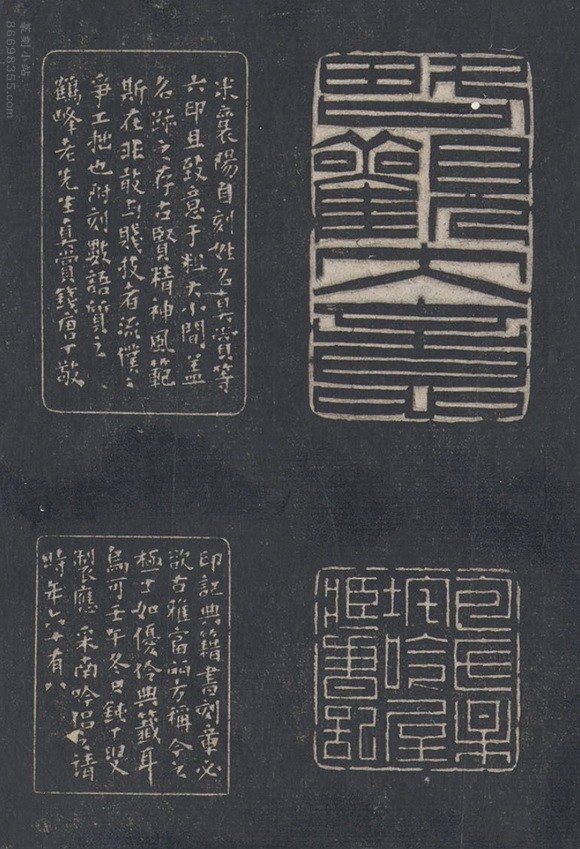 略觀大意
米襄陽自刻姓名真賞等
六印且致意于粗大小間蓋
名跡之存古賢精神風範
斯在非敢与賤技者流僕〻
爭工拙也附刻數語質之
鶴峰老先生真賞錢唐丁敬
包氏某
垞吟屋
臧書記
印記典籍書刻章必
欲古雅富丽方稱今之
極工如優伶典籖耳
烏可壬午冬日鈍丁叟
製應 采南吟侶之請
時年六十有八
篆刻小站
86698355.com